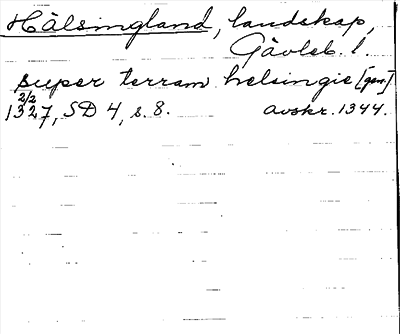 Hälsingland, landskap,
Gävleb. l.
super terram helsingie [gen.]
2/2
1327, SD 4, s. 8. avskr. 1344.